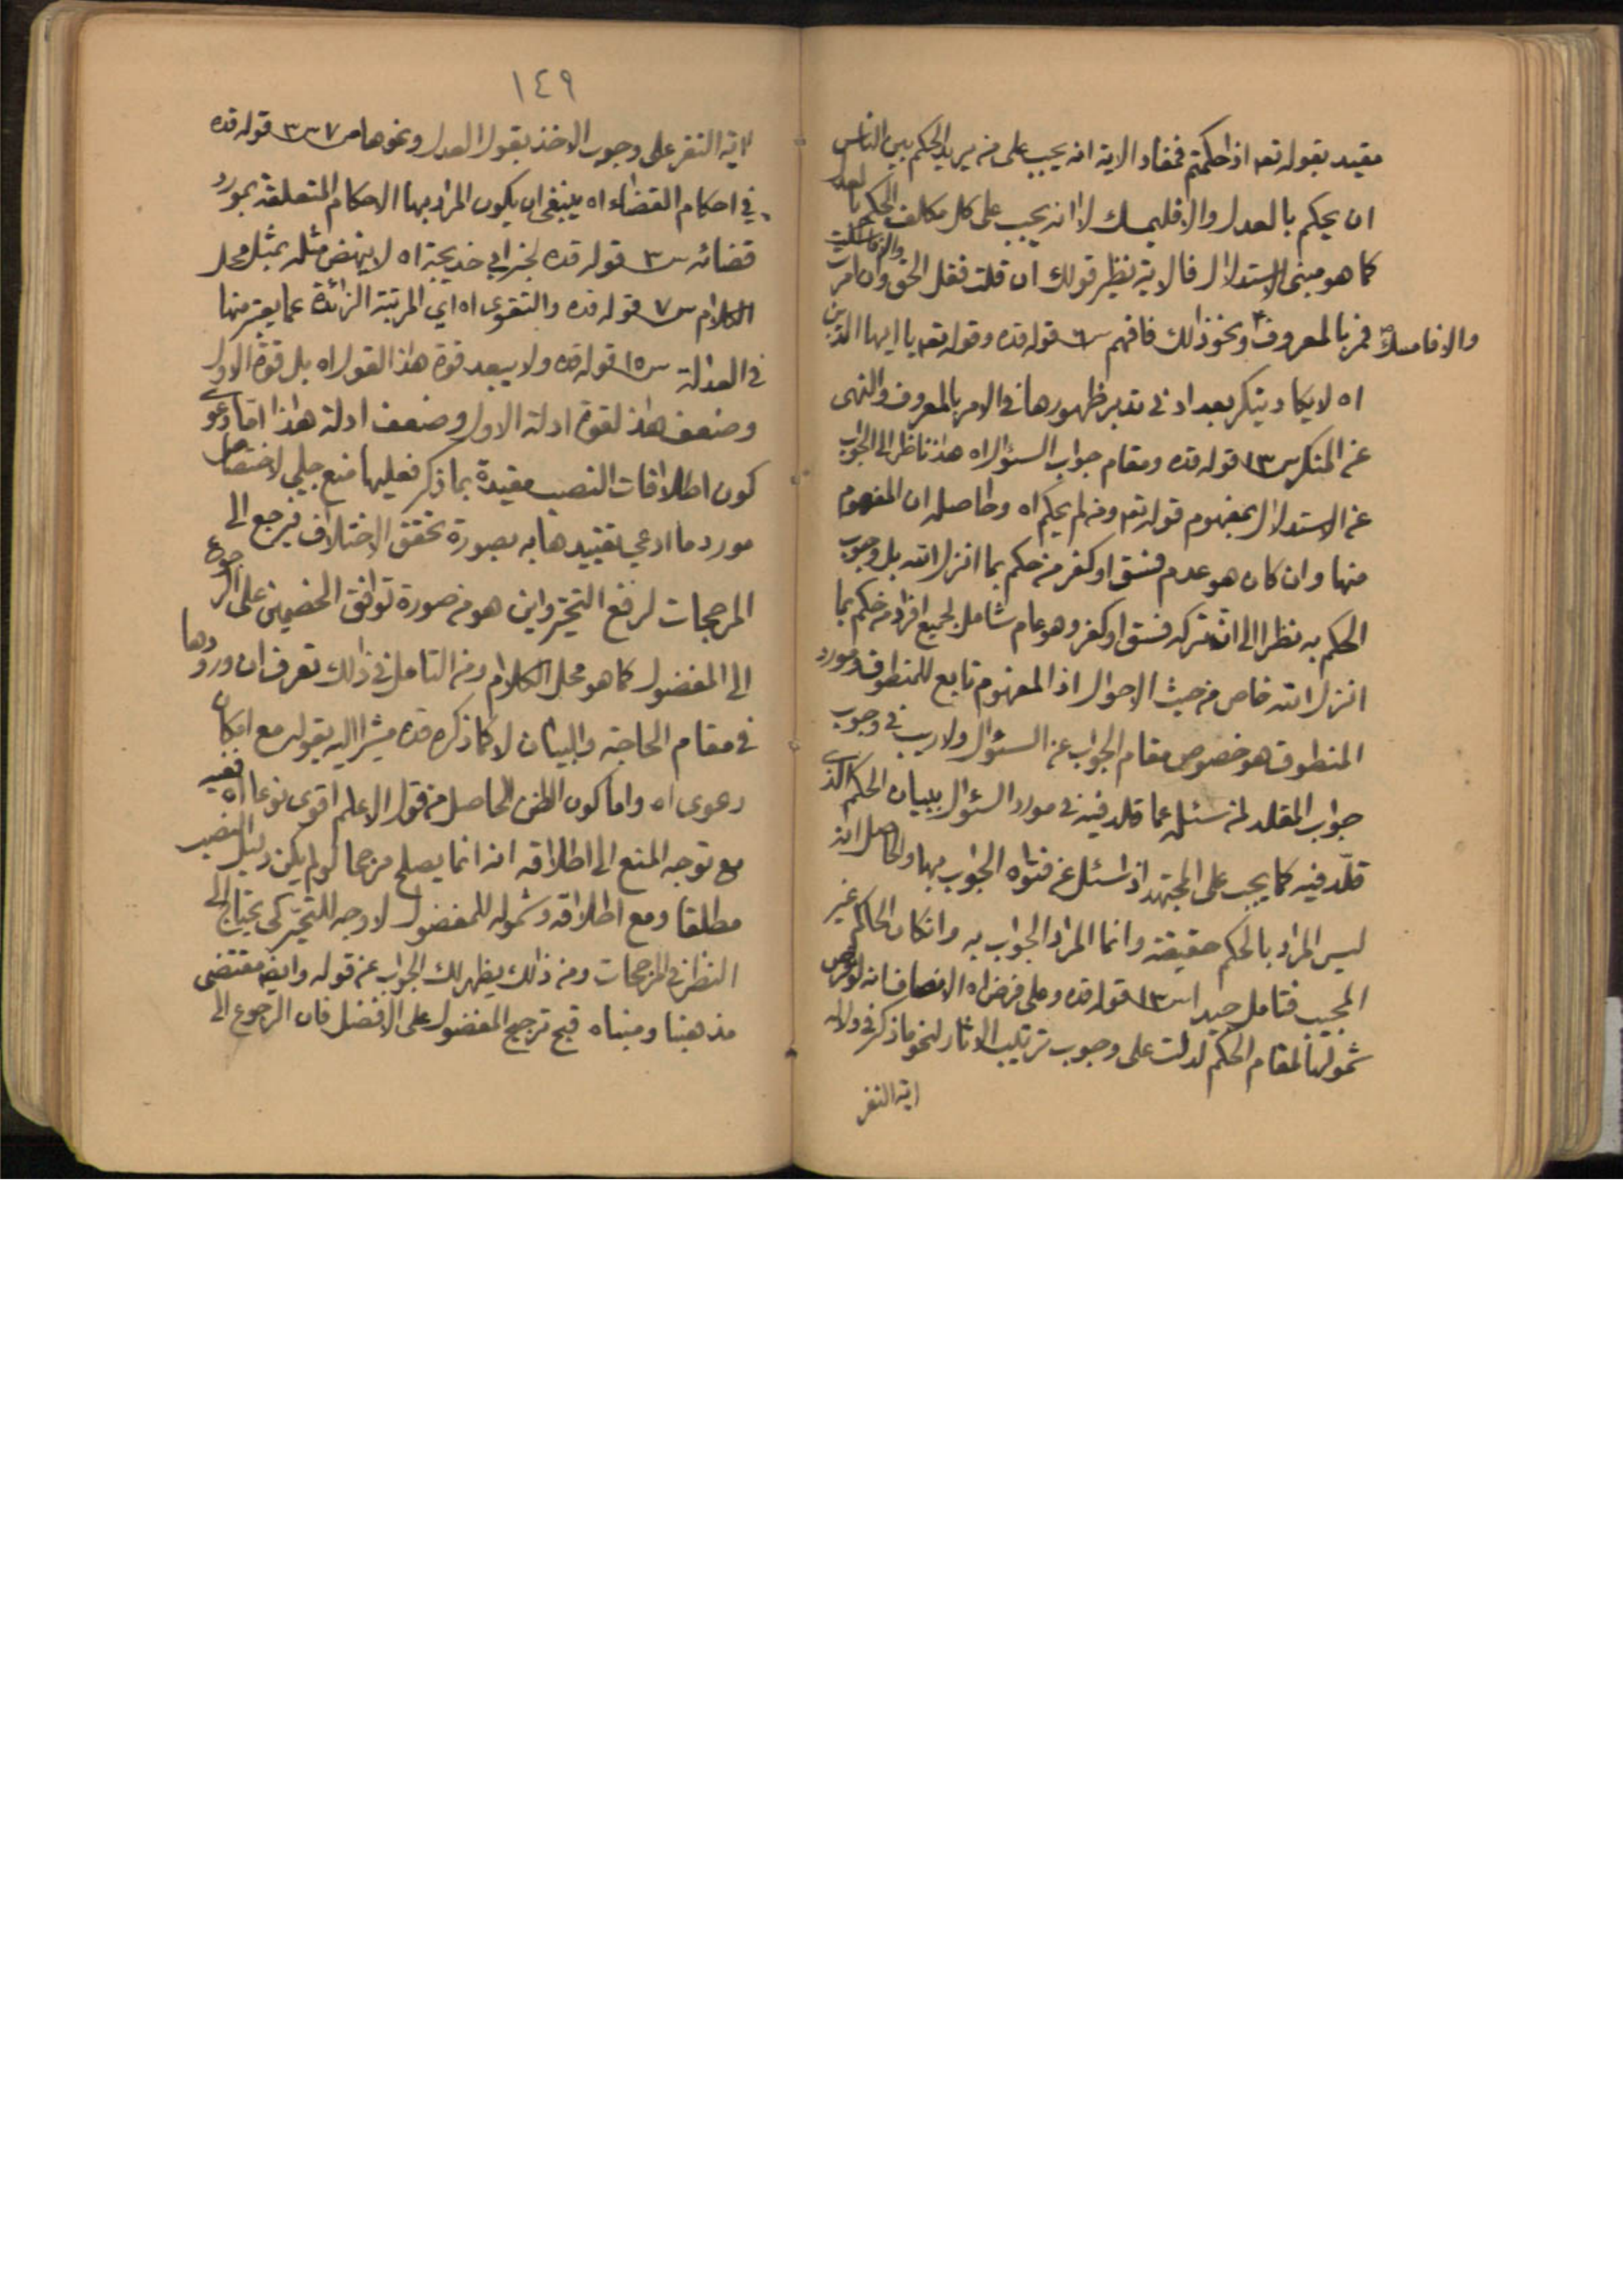 مقيد بقوله تعه اذا حكمتم فمفاد الاية انه يجب على من يريد الحكم بين الناس
ان يحكم بالعدل والا فليمسك لا انه يجب على كل مكلف الحكم بالعدل
كما هو مبنى الاستدلال فالاية نظير قولك ان قلت فقل الحق والا فاسكت وان امرت
فمر بالمعروف والا فامسك ونحو ذلك فافهم س٦ قوله قده وقوله تعه يا ايها الذين
اه لا يكاد ينكر بعد اد فى تدبر ظهورها فى الامر بالمعروف والنهى
عن المنكر س١٣ قوله قده ومقام جواب السئوال اه هذا ناظر الى الجواب
عن الاستدلال بمفهوم قوله تعه ومن لم يحكم اه وحاصله ان المفهوم
منها وان كان هو عدم فسق او كفر من حكم بما انزل الله بل وجوب
الحكم به نظرا الى ان تركه فسق او كفر وهو عام شامل لجميع افراد من حكم بما
انزل الله خاص من حيث الاحوال اذ المفهوم تابع للمنطوق ومورد
المنطوق هو خصوص مقام الجواب عن السئوال ولا ريب فى وجوب
جواب المقلد لمن سئله عما قلد فيه فى مورد السئوال ببيان الحكم الذى
قلّد فيه كما يجب على المجتهد اذا سئل عن فتواه الجواب بها والحاصل انه
ليس المراد بالحكم حقيقته وانما المراد الجواب به وانكان الحاكم غير
المجيب فتامل جيدا س١٣ قوله قده وعلى فرض اه الانصاف انه لو فرض
شمولها لمقام الحكم لدلت على وجوب ترتيب الاثار لنحو ما ذكر فى دلالة
اية النفر
١٤٩
اية النفر على وجوب الاخذ بقول العدل ونحوها ص٧ س٣ قوله قده
فى احكام القضاء اه ينبغى ان يكون المراد بها الاحكام المتعلقة بمورد
قضائه س٣ قوله قده لخبر ابي خديجة اه لا ينهض مثله بمثل محل
الكلام س٧ قوله قده والتقوى اه اي المرتبة الزائدة عما يعتبر منها
فى العدالة س١٥ قوله قده ولا يبعد قوة هذا القول اه بل قوة الاول
وضعف هذا لقوة ادلة الاول وضعف ادلة هذا اما دعوى
كون اطلاقات النصب مقيدة بما ذكر فعليها منع جلي لاختصاص
مورد ما ادعي تقييدها به بصورة تحقق الاختلاف فيرجع الى
المرجحات لرفع التحير واين هو من صورة توافق الخصمين على الرجوع
الى المفضول كما هو محل الكلام ومن التامل فى ذلك تعرف ان ورودها
فى مقام الحاجة والبيان لا كما ذكره قده مشيرا اليه بقوله مع امكان
دعوى اه واما كون الظن الحاصل من قول الاعلم اقوى نوعا اه ففيه
مع توجه المنع الى اطلاقه انه انما يصلح مرجحا لو لم يكن دليل النصب
مطلقا ومع اطلاقه وشموله للمفضول لا وجه للتحيّر كى يحتاج الى
النظر فى المرجحات ومن ذلك يظهر لك الجواب عن قوله وايضا مقتضى
مذهبنا ومبناه قبح ترجيح المفضول على الافضل فان الرجوع الى